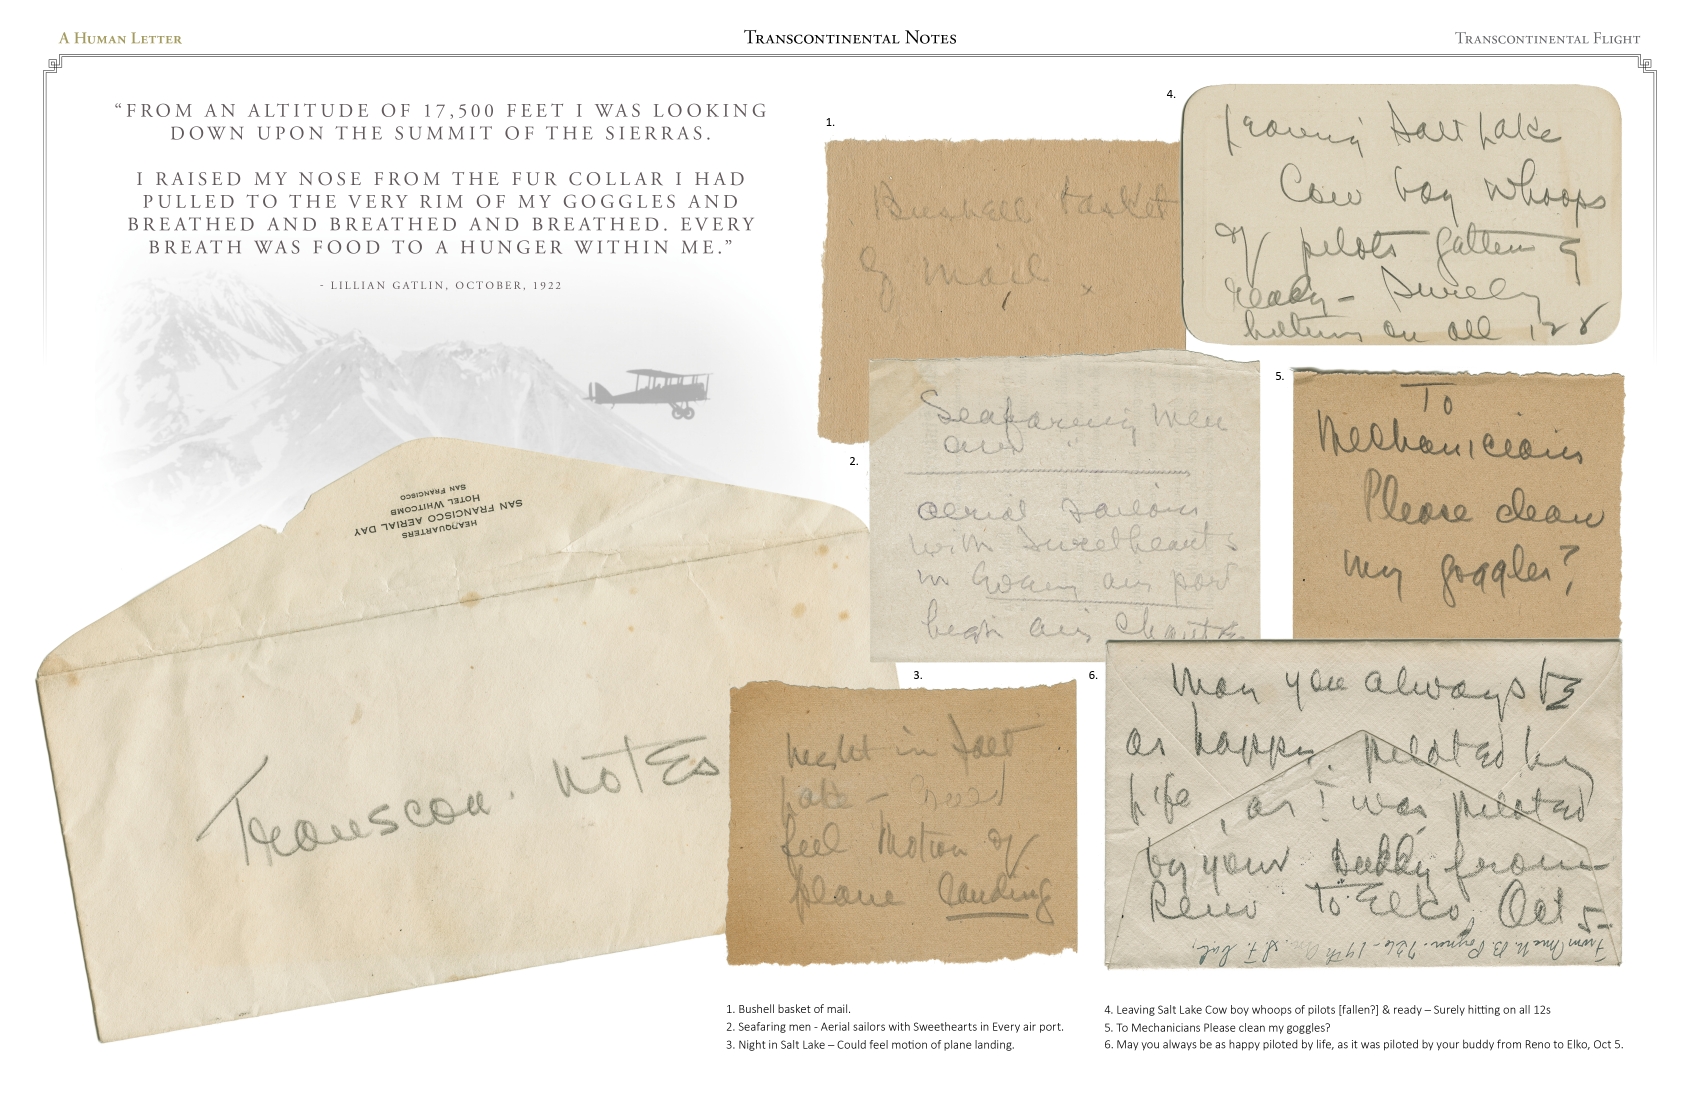 A Human Letter
Transcontinental Notes
Transcontinental Flight
“From an altitude of 17,500 feet I was looking
down upon the summit of the Sierras.
I raised my nose from the fur collar I had
pulled to the very rim of my goggles and
breathed and breathed and breathed. Every
breath was food to a hunger within me.”
- Lillian Gatlin, October, 1922
Headquarters
San Francisco Aerial Day
Hotel Whitcomb
San Francisco
Transcon. Notes
1.
Bushell basket
of mail
2.
Seafaring Men
and "
aerial sailors
with Sweethearts
in every air port
begin air
3.
Night in Salt
Lake –
feel motion of
plane landing
4.
Leaving Salt Lake
Cow boy whoops
of pilots &
ready – Surely
hitting on all 12s
5.
To
Mechanicians
Please clean
my goggles?
6.
May you always be
as happy, piloted by
life, as I was piloted
by your daddy from
Reno to Elko, Oct 5–
1. Bushell basket of mail.
2. Seafaring men - Aerial sailors with Sweethearts in Every air port.
3. Night in Salt Lake – Could feel motion of plane landing.
4. Leaving Salt Lake Cow boy whoops of pilots [fallen?] & ready – Surely hitting on all 12s
5. To Mechanicians Please clean my goggles?
6. May you always be as happy piloted by life, as it was piloted by your buddy from Reno to Elko, Oct 5.